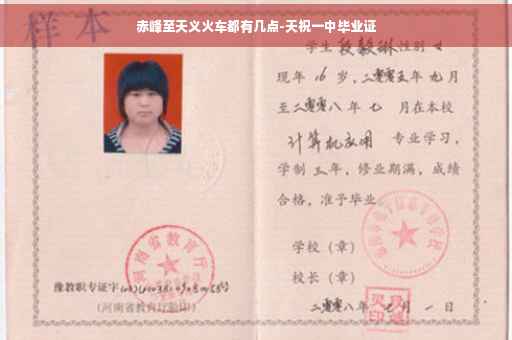 赤峰至天义火车都有几点-天祝一中毕业证
样本
学生段毅琳性别女
现年16岁，二零零五年九月
至二零零八年七月在本校
计算机应用 专业学习，
学制三年，修业期满，成绩
合格，准予毕业
学校（章）
校长（章）
二零零八年七月一日
河南省教育厅
豫教职专证字
（河南省教育厅验印）